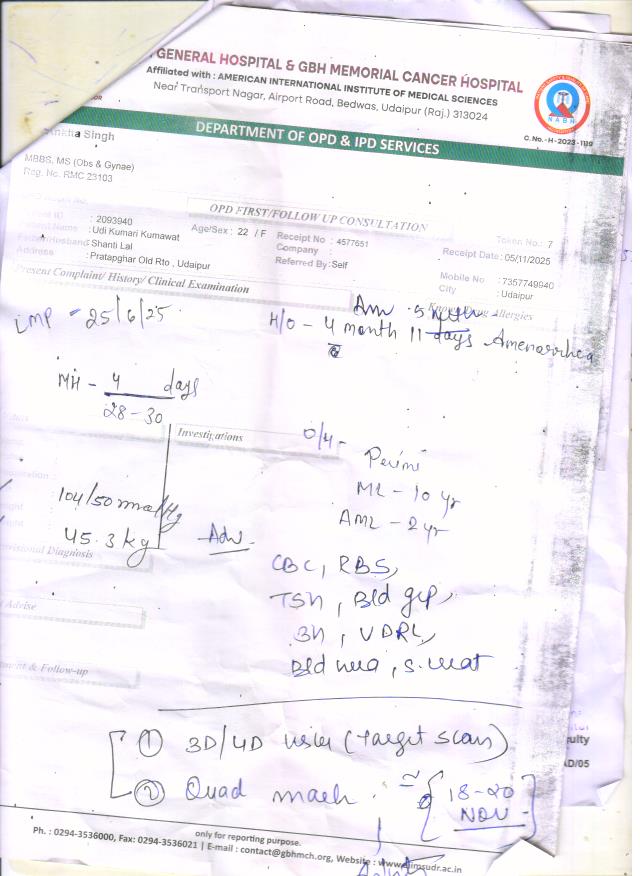 GENERAL HOSPITAL & GBH MEMORIAL CANCER HOSPITAL
Affiliated with : AMERICAN INTERNATIONAL INSTITUTE OF MEDICAL SCIENCES
Near Transport Nagar, Airport Road, Bedwas, Udaipur (Raj.) 313024
NABH
C. No.-H-2023-1199
DEPARTMENT OF OPD & IPD SERVICES
Singh
MBBS, MS (Obs & Gynae)
Reg. No. RMC 23103
OPD FIRST/FOLLOW UP CONSULTATION
Token No.: 7
: 2093940
Age/Sex : 22 / F
Receipt No : 4577651
Receipt Date: 05/11/2025
: Udi Kumari Kumawat
Company :
: Shanti Lal
Referred By :Self
Mobile No : 7357749940
Address : Pratapghar Old Rto , Udaipur
City : Udaipur
Present Complaint/ History/ Clinical Examination
Known Drug Allergies
LMP - 25/6/25
H/O - 4 month 11 days Amenorrhea
MH - 4 days
28-30
Investigations
O/H -
Primi
ML - 10 yr
AML - 2 yr
104/50 mmHg
45.3 kg
Adv.
Provisional Diagnosis
CBC, RBS,
TSH, Bld grp,
VDRL,
Advise
& Follow-up
① 3D/4D (Target scan)
② Quad
18-20
NOV
ulty
AD/05
only for reporting purpose.
Ph. : 0294-3536000, Fax: 0294-3536021 | E-mail : contact@gbhmch.org, Website : www.aiimsudr.ac.in